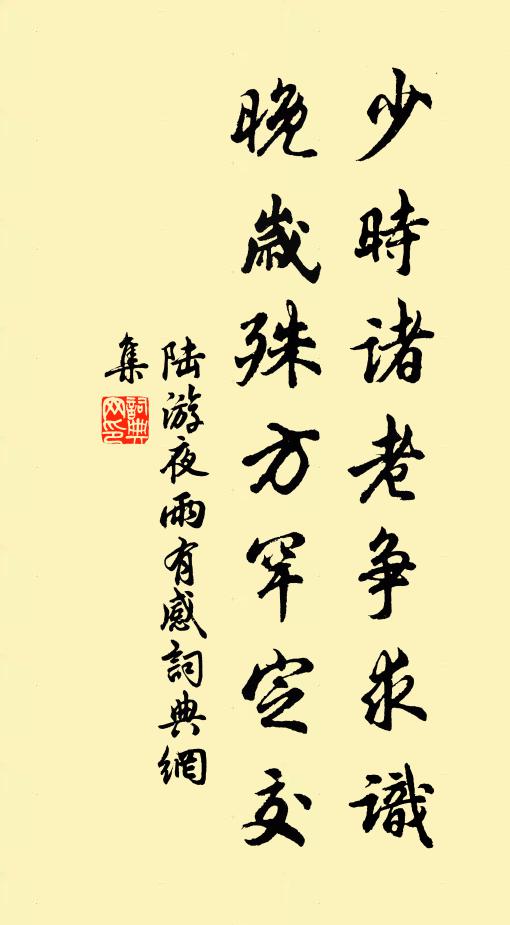 少時諸老争求識
晚歲殊方罕定交
陆游夜雨有感詞典網
集
詞典网印